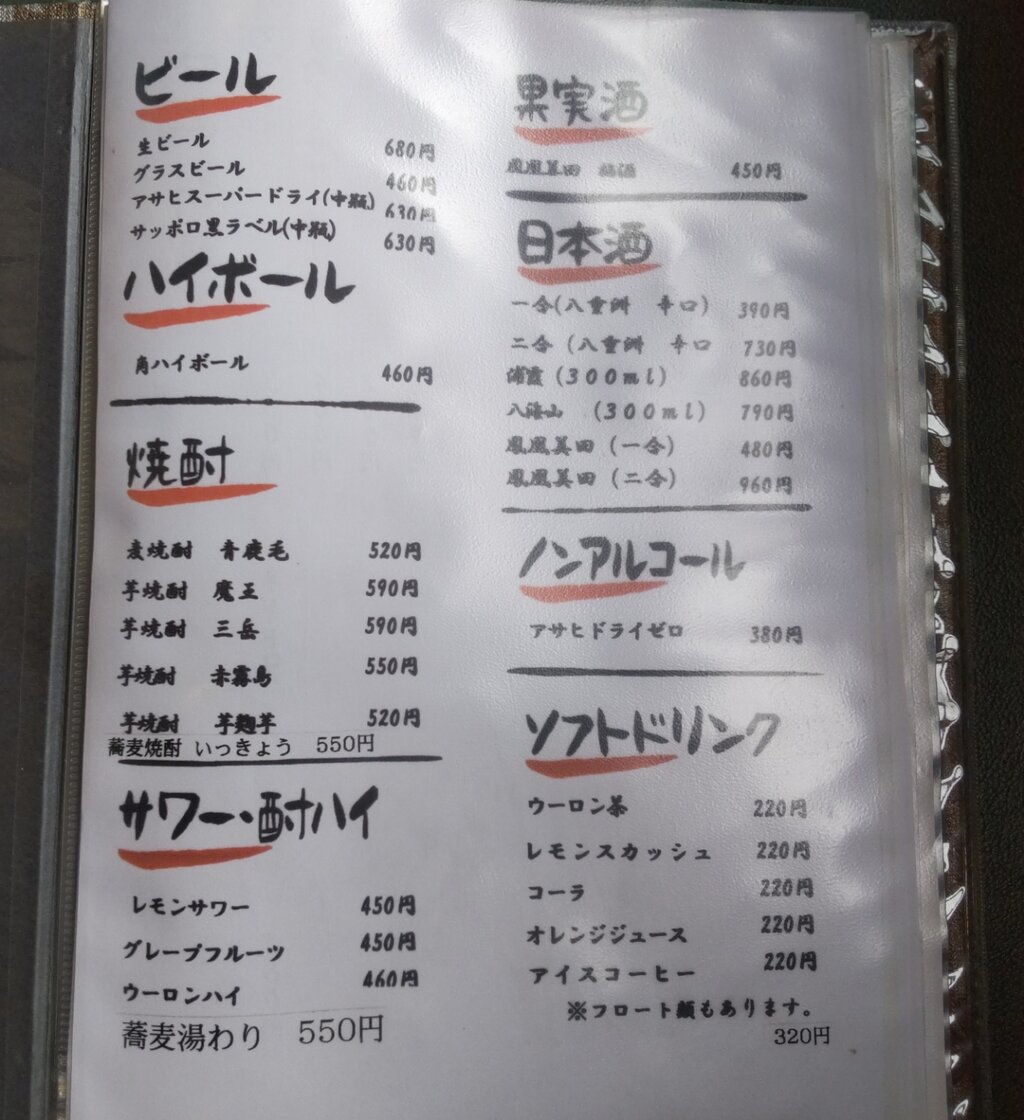 ビール
生ビール 680円
グラスビール 460円
アサヒスーパードライ(中瓶) 630円
サッポロ黒ラベル(中瓶) 630円
ハイボール
角ハイボール 460円
焼酎
麦焼酎 青鹿毛 520円
芋焼酎 魔王 590円
芋焼酎 三岳 590円
芋焼酎 赤霧島 550円
芋焼酎 芋麹芋 520円
蕎麦焼酎 いっきょう 550円
サワー・酎ハイ
レモンサワー 450円
グレープフルーツ 450円
ウーロンハイ 460円
蕎麦湯わり 550円
果実酒
鳳凰美田 梅酒 450円
日本酒
一合(八重桝 辛口) 390円
二合(八重桝 辛口 730円
浦霞(300ml) 860円
八海山 (300ml) 790円
鳳凰美田(一合) 480円
鳳凰美田(二合) 960円
ノンアルコール
アサヒドライゼロ 380円
ソフトドリンク
ウーロン茶 220円
レモンスカッシュ 220円
コーラ 220円
オレンジジュース 220円
アイスコーヒー 220円
※フロート類もあります。
320円